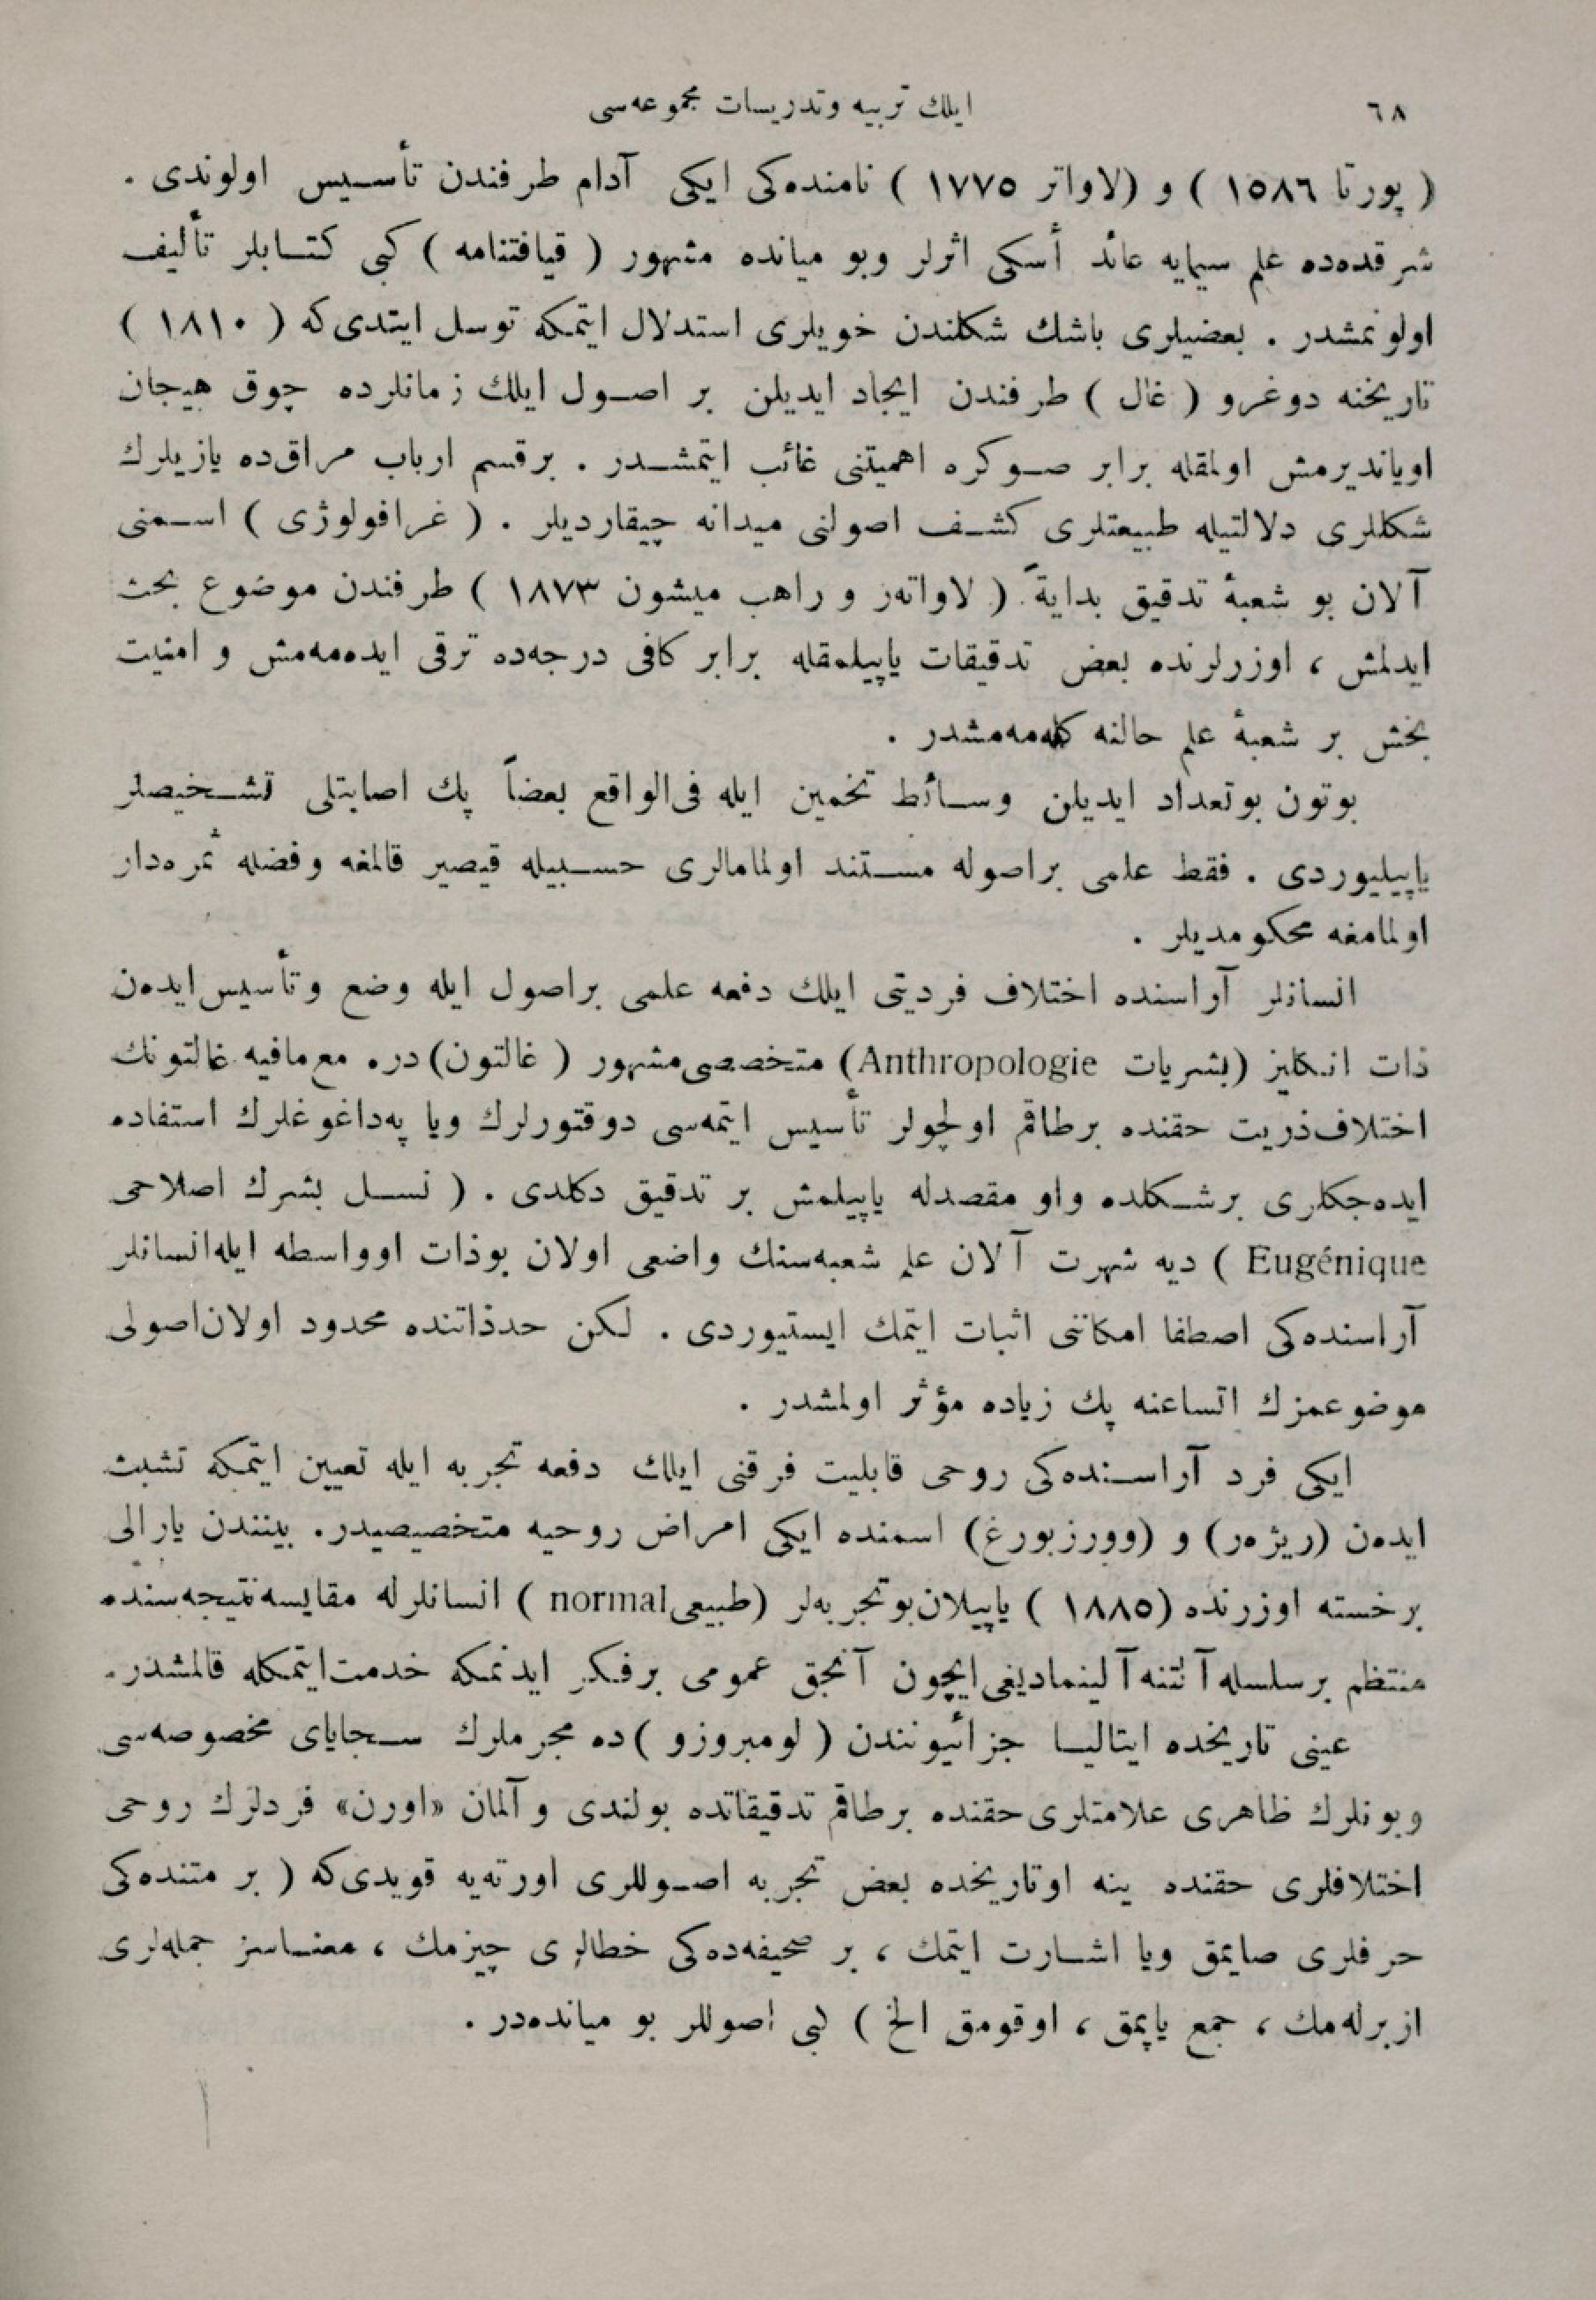 ٦٨
ايلك تربيه وتدريسات مجموعه‌سى
( پورتا ١٥٨٦ ) و (لاواتر ١٧٧٥ ) نامنده‌كى ايكى آدام طرفندن تأسيس اولوندى .
شرقده‌ده علم سيمايه عائد أسكى اثرلر وبو ميانده مشهور ( قيافتنامه ) كبى كتابلر تأليف
اولونمشدر . بعضيلرى باشك شكلندن خويلرى استدلال ايتمكه توسل ايتدى‌كه ( ١٨١٠ )
تاريخنه دوغرو ( غال ) طرفندن ايجاد ايديلن بر اصول ايلك زمانلرده چوق هيجان
اوياندیرمش اولمقله برابر صوكره اهميتنى غائب ايتمشدر . برقسم ارباب مراق‌ده يازيلرك
شكللرى دلالتيله طبيعتلرى كشف اصولنى ميدانه چيقارديلر . ( غرافولوژى ) اسمنى
آلان بو شعبۀ تدقيق بدايةً ( لاواته‌ر و راهب ميشون ١٨٧٣ ) طرفندن موضوع بحث
ايدلمش ، اوزرلرنده بعض تدقيقات ياپيلمقله برابر كافى درجه‌ده ترقى ايده‌مه‌مش و امنيت
بخش بر شعبۀ علم حالنه كله‌مه‌مشدر .
بوتون بوتعداد ايديلن وسائط تخمين ايله فى‌الواقع بعضاً پك اصابتلى تشخيصلر
ياپيليوردى . فقط علمى براصوله مستند اولمامالرى حسبيله قيصير قالمغه وفضله ثمره‌دار
اولمامغه محكومديلر .
انسانلر آراسنده اختلاف فرديتى ايلك دفعه علمى براصول ايله وضع وتأسيس‌ايده‌ن
ذات انكليز (بشريات Anthropologie) متخصصى‌مشهور ( غالتون)در. مع‌مافيه غالتونك
اختلاف‌ذريت حقنده برطاقم اولچولر تأسيس ايتمه‌سى دوقتورلرك ويا په‌داغوغلرك استفاده
ايده‌جكلرى برشكلده واو مقصدله ياپيلمش بر تدقيق دكلدى . ( نسل بشرك اصلاحى
Eugénique ) ديه شهرت آلان علم شعبه‌سنك واضعى اولان بوذات اوواسطه ايله‌انسانلر
آراسنده‌كى اصطفا امكاننى اثبات ايتمك ايستيوردى . لكن حدذاتنده محدود اولان‌اصولى
موضوعمزك اتساعنه پك زياده مؤثر اولمشدر .
ايكى فرد آراسنده‌كى روحى قابليت فرقنى ايلك دفعه تجربه ايله تعيين ايتمكه تشبث
ايده‌ن (ريژه‌ر) و (وورزبورغ) اسمنده ايكى امراض روحيه متخصيصيدر. بيننندن يارالى
برخسته اوزرنده (١٨٨٥ ) ياپيلان‌بوتجربه‌لر (طبيعى normal ) انسانلرله مقايسه‌نتيجه‌سنده
منتظم برسلسله‌آلتنه‌آلينماديغى‌ايچون آنجق عمومى برفكر ايدنمكه خدمت‌ايتمكله قالمشدر.
عينى تاريخده ايتاليا جزائيونندن ( لومبروزو )ده مجرملرك سجاياى مخصوصه‌سى
وبونلرك ظاهرى علامتلرى‌حقنده برطاقم تدقيقاتده بولندى وآلمان «اورن» فردلرك روحى
اختلافلرى حقنده ينه اوتاريخده بعض تجربه اصوللرى اورته‌يه قويدى‌كه ( بر متنده‌كى
حرفلرى صايمق ويا اشارت ايتمك ، بر صحيفه‌ده‌كى خطالرى چيزمك ، معناسز جمله‌لرى
ازبرله‌مك ، جمع ياپمق ، اوقومق الخ ) كبى اصوللر بو ميانده‌در .